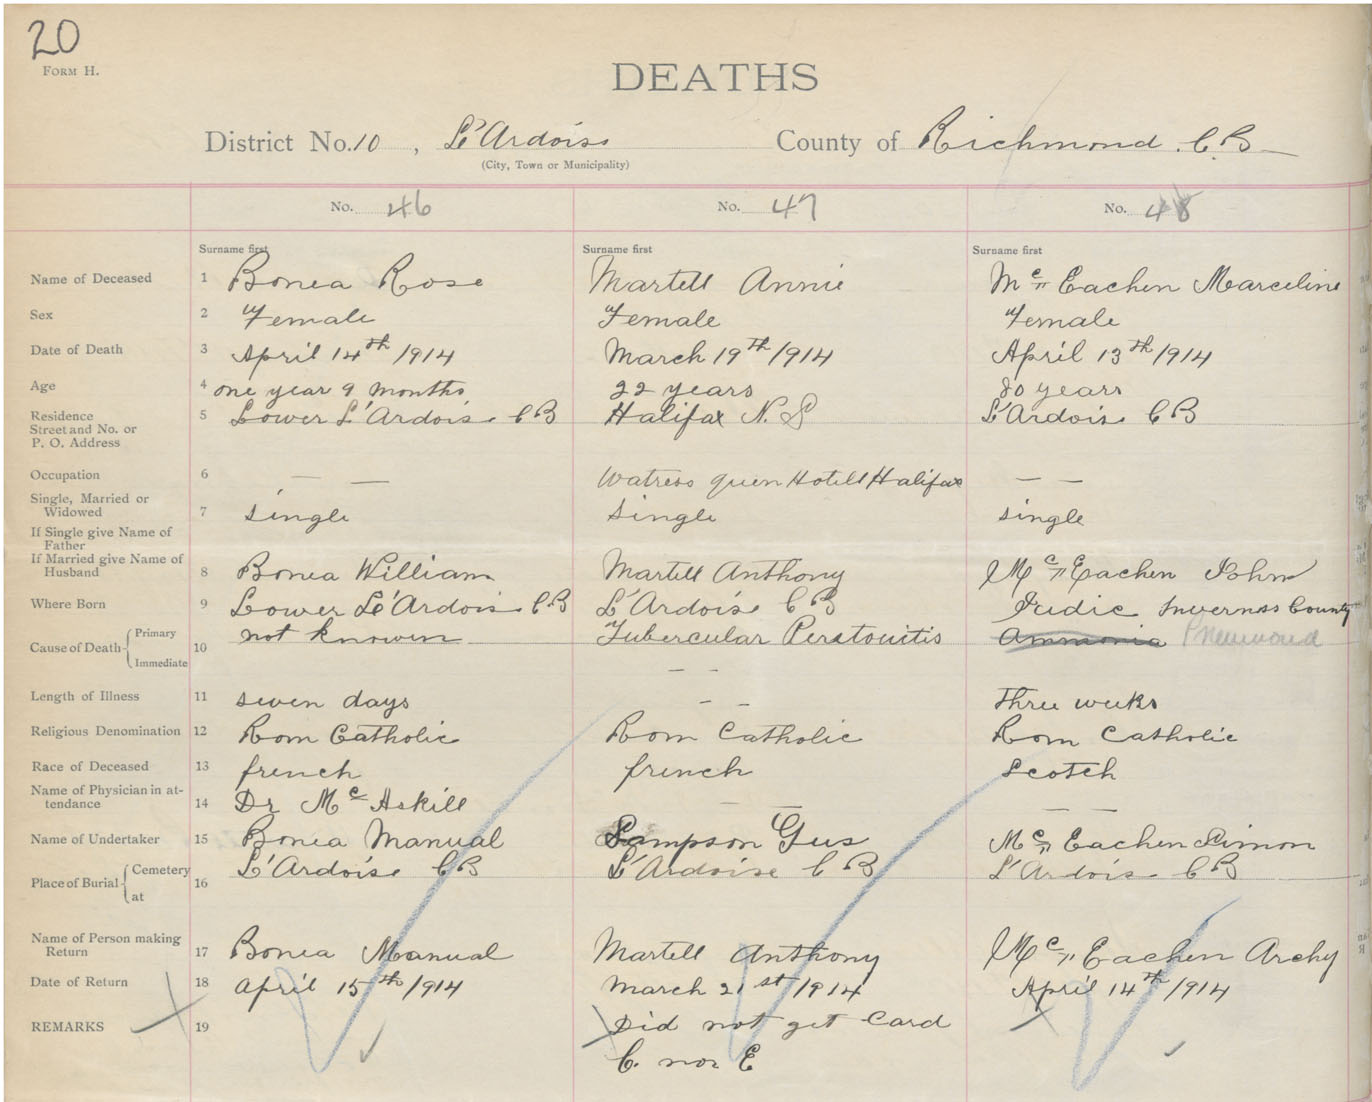 20
FORM H.
DEATHS
District No. 10, L'Ardoise County of Richmond. C.B
(City, Town or Municipality)
No. 46 No. 47 No. 48
Surname first Surname first Surname first
Name of Deceased 1 Bonea Rose Martell Annie McEachen Marceline
Sex 2 Female Female Female
Date of Death 3 April 14th/1914 March 19th/1914 April 13th/1914
Age 4 one year 9 months 22 years 20 years
Residence 5 Lower L'Ardoise CB Halifax N.S L'Ardois CB
Street and No. or
P. O. Address
Occupation 6 — — Watress quen Hotell Halifax — —
Single, Married or
Widowed 7 single single single
If Single give Name of
Father
If Married give Name of
Husband 8 Bonea William Martell Anthony McEachen John
Where Born 9 Lower L'Ardois CB L'Ardois CB Judic Inverness County
Cause of Death Primary 10 not knowen Tubercular Peratonitis Ammonia
Immediate — —
Length of Illness 11 seven days — — Three weeks
Religious Denomination 12 Rom Catholic Rom Catholic Rom Catholic
Race of Deceased 13 french french Scotch
Name of Physician in at-
tendance 14 Dr McAskill — — — —
Name of Undertaker 15 Bonea Manual Sampson Gus McEachen Simon
Place of Burial Cemetery 16 L'Ardoise CB L'Ardoise CB L'Ardois CB
at
Name of Person making
Return 17 Bonea Manual Martell Anthony McEachen Archy
Date of Return 18 April 15th/1914 March 21st/1914 April 14th/1914
REMARKS 19 Did not get Card
C. nor E